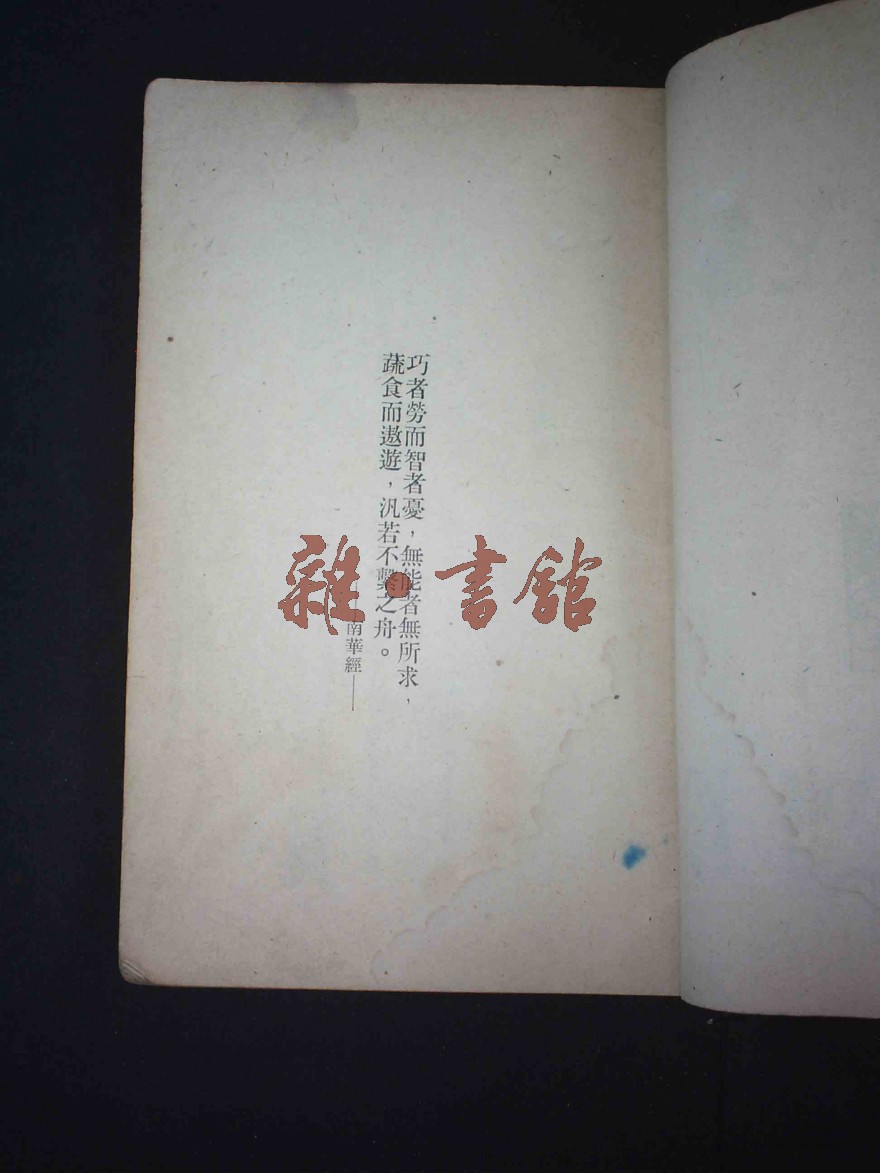 巧者勞而智者憂，無能者無所求，
蔬食而遨遊，汎若不繫之舟。
——南華經——
雜·書館